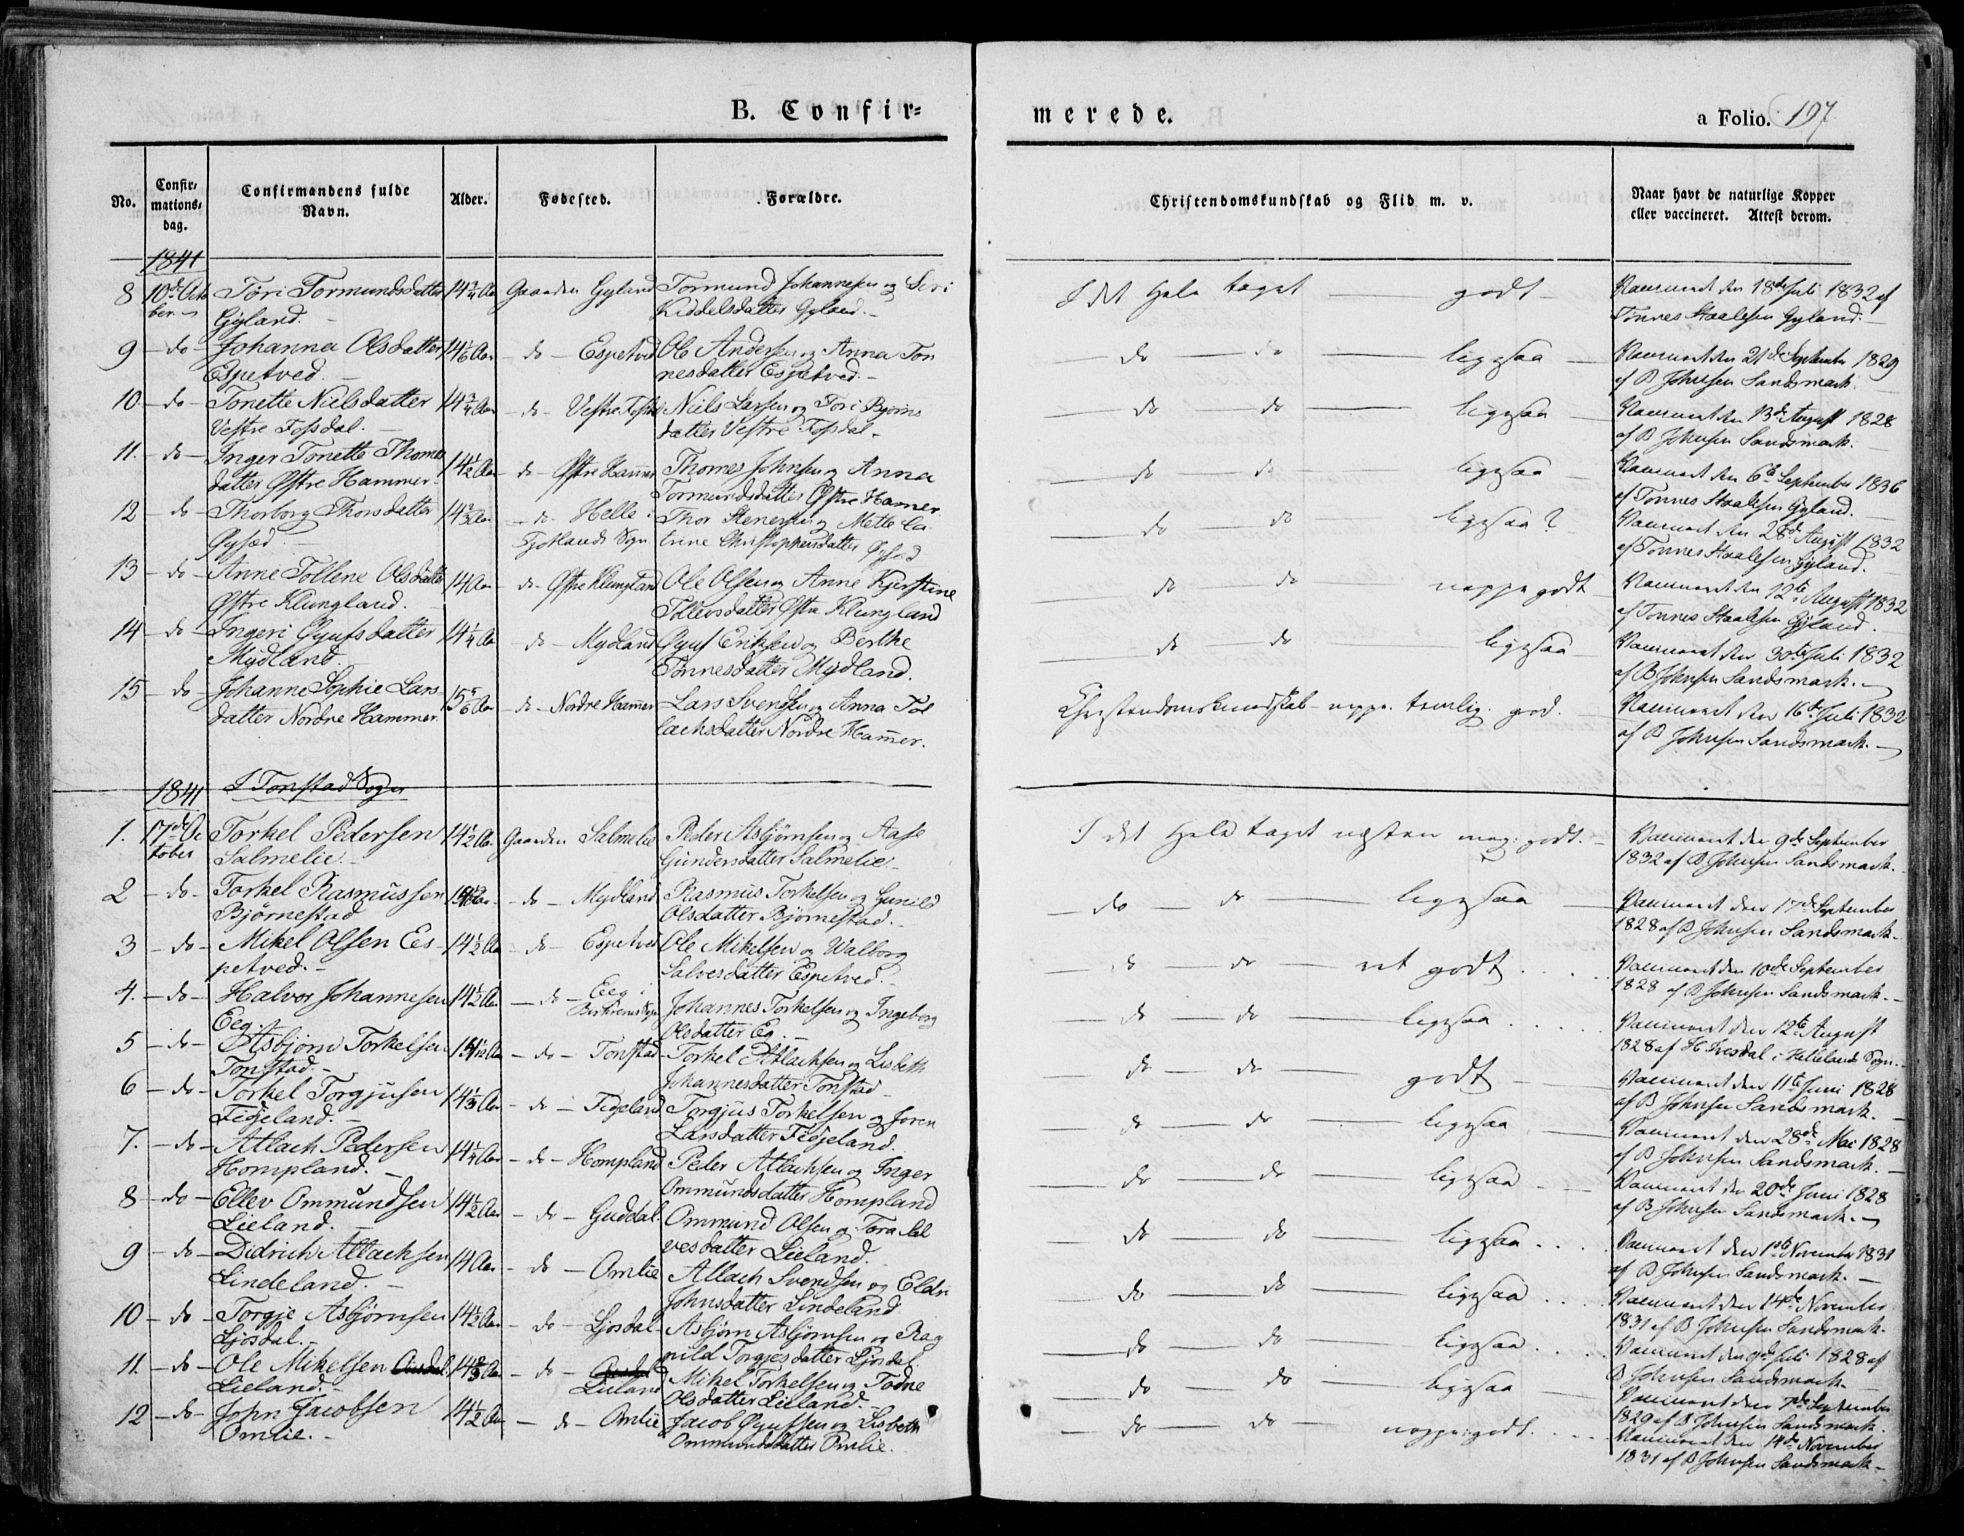 B. Confir=
merede.
a Folio. 197
No.
Confir=
mations=
dag.
Confirmandens fulde
Navn.
Alder.
Fødested.
Forældre.
Christendomskundskab og Flid m. v.
Naar havt de naturlige Kopper
eller vaccineret. Attest derom.
1841
8 10de Octo Tøri Tormundsdatter 14 3/4 Aar Gaarden Gyland Tormund Johannesen og Seri I det Hele taget — godt — Vaccineret den 18de Juli 1832 af
ber Gyland. — Kiddelsdatter Gyland. — Tønnes Staalesen Gyland. —
9 — do — Johanna Olsdatter 14 1/6 Aar — do — Espetved Ole Andersen og Anna Ton do — do — ligesaa — Vaccineret den 21de September 1829
Espetved. — nesdatter Espetved. — af B Johnsen Sandsmark.
10 — do — Tonette Nielsdatter 14 3/4 Aar — do — Vestre Fosdal Niels Larsen og Tori Bjørns do do — ligesaa — Vaccineret den 13de August 1828
Vestre Fosdal. — datter Vestre Fosdal. af B Johnsen Sandsmark.
11. do — Inger Tonette Thomes 14 1/2 Aar — do Østre Hammer Thomes Johnsen og Anna do do — ligesaa — Vaccineret den 6te September 1836
datter Østre Hammer. Tormundsdatter Østre Hamer. af Tønnes Staalesen Gyland. —
12 do — Thorborg Thorsdatter 14 2/3 Aar — do Helle i Thor Stenersen og Mette Ca do — do — ligesaa ? Vaccineret den 28de August 1832
Øysæd Fjotlands Sogn trine Christophersdatter Øysæd af Tønnes Staalesen Gyland.
13 — do — Anne Tollene Olsdatter 14 Aar do Østre Klungland Ole Olsen og Anne Kjerstine do do — noppe godt Vaccineret den 12te August 1832
Østre Klungland. Tollevsdatter Østre Klungland af Tonnes Staalesen Gyland.
14 — do — Ingeri Gyufsdatter 14 1/4 Aar do — Mydland Gyuf Eriksen og Berthe do — do — ligesaa — Vaccineret den 30te Juli 1832
Mydland. Tønnesdatter Mydland. af B Johnsen Sandsmark.
15 do — Johanne Sophie Lars 15 5/6 Aar — do — Nordre Hamer Lars Svendsen og Anna Tol Christendomskundskab noppe temlig god. Vaccineret den 16de Juli 1832
datter Nordre Hammer. lachsdatter Nordre Hamer. af B Johnsen Sandsmark. —
1841 I Tonstad Sogn
1. 17de Oc Torkel Pedersen 14 1/2 Aar Gaarden Salmelie Peder Asbjørnsen og Aase I det Hele taget næsten meg. godt. — Vaccineret den 9de September
tober Salmelie — Gundersdatter Salmelie — 1832 af B Johnsen Sandsmark.
2 — do — Torkel Rasmussen Aar — do — Mydland Rasmus Torkelsen og Gunild — do — do — ligesaa — Vaccineret den 17de September
Bjørnestad Olsdatter Bjørnestad. 1828 af B Johnsen Sandsmark.
3 — do — Mikel Olsen Es 14 1/2 Aar — do — Espetved Ole Mikelsen og Walborg do — do — ret godt Vaccineret den 10de September
petved. — Salvesdatter Espetved. 1828 af B Johnsen Sandsmark. —
4. — do — Halvor Johannesen 14 1/2 Aar — do — Eeg i Johannes Torkelsen og Ingeborg do — do — ligesaa Vaccineret den 12te August
Eeg. Birkrems Sogn Olsdatter Eg. 1828 af H Ivesdal i Hellelands Sogn.
5 — do — Asbjorn Torkelsen Aar — do — Tonstad Torkel Atlachsen og Lisbeth do — do — godt — Vaccineret den 11te Juni 1828
Tonstad. — Johannesdatter Tonstad af B Johnsen Sandsmark.
6 — do — Torkel Torgjusen 14 1/3 Aar — do — Fidjeland Torgjus Torkelsen og Joren do — do — ligesaa — Vaccineret den 28de Mai 1828
Fidjeland. — Larsdatter Fidjeland. af B Johnsen Sandsmark. —
7. — do — Atlach Pedersen 14 1/4 Aar — do — Hompland Peder Atlachsen og Inger do — do — ligesaa Vaccineret den 20de Juni 1828
Hompland. — Ommundsdatter Hompland af B Johnsen Sandsmark. —
8 — do — Ellev Ommundsen 14 1/2 Aar — do — Guddal Ommund Olsen og Tora Sal do — do — ligesaa Vaccineret den 1te November 1831
Lieland. — vesdatter Lieland. af B Johnsen Sandsmark. —
9 — do — Didrich Atlachsen 14 Aar — do — Omlie Atlach Svendsen og Eldri do — do — ligesaa Vaccineret den 14de November
Lindeland. — Johnsdatter Lindeland 1831 af B Johnsen Sandsmark.
10 — do — Torgje Asbjørnsen 14 1/2 Aar — do — Ljosdal Asbjørn Asbjørnsen og Rag do — do — ligesaa Vaccineret den Juli 1828 af
Ljosdal. — nild Torgjesdatter Ljosdal. B Johnsen Sandsmark. —
11. — do — Ole Mikelsen 14 2/3 Aar — do — Mikel Torkelsen og Todne do — do — ligesaa — Vaccineret den 7de September
Lieland. — Lieland Olsdatter Lieland. — 1829 af B Johnsen Sandsmark.
12 — do — John Jacobsen 14 1/2 Aar — do — Omlie Jacob Gyufsen og Lisbeth do — do — noppe godt. Vaccineret den 14de November
Omlie. — Ommundsdatter Omlie. 1831 af B Johnsen Sandsmark —